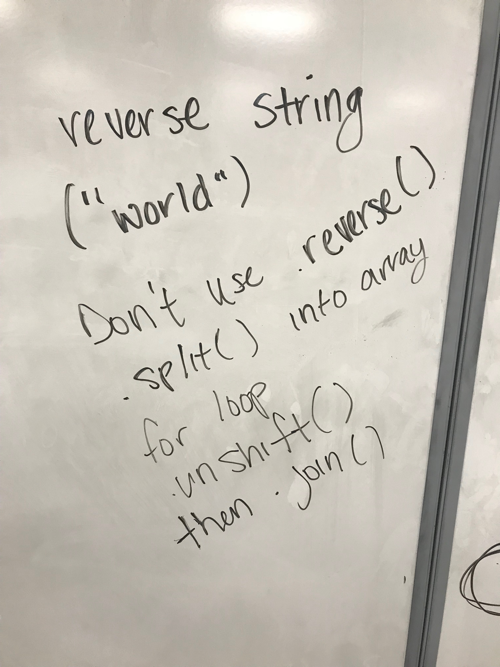 reverse string
("world")
Don't use .reverse()
.split() into array
for loop
.unshift()
then .join()